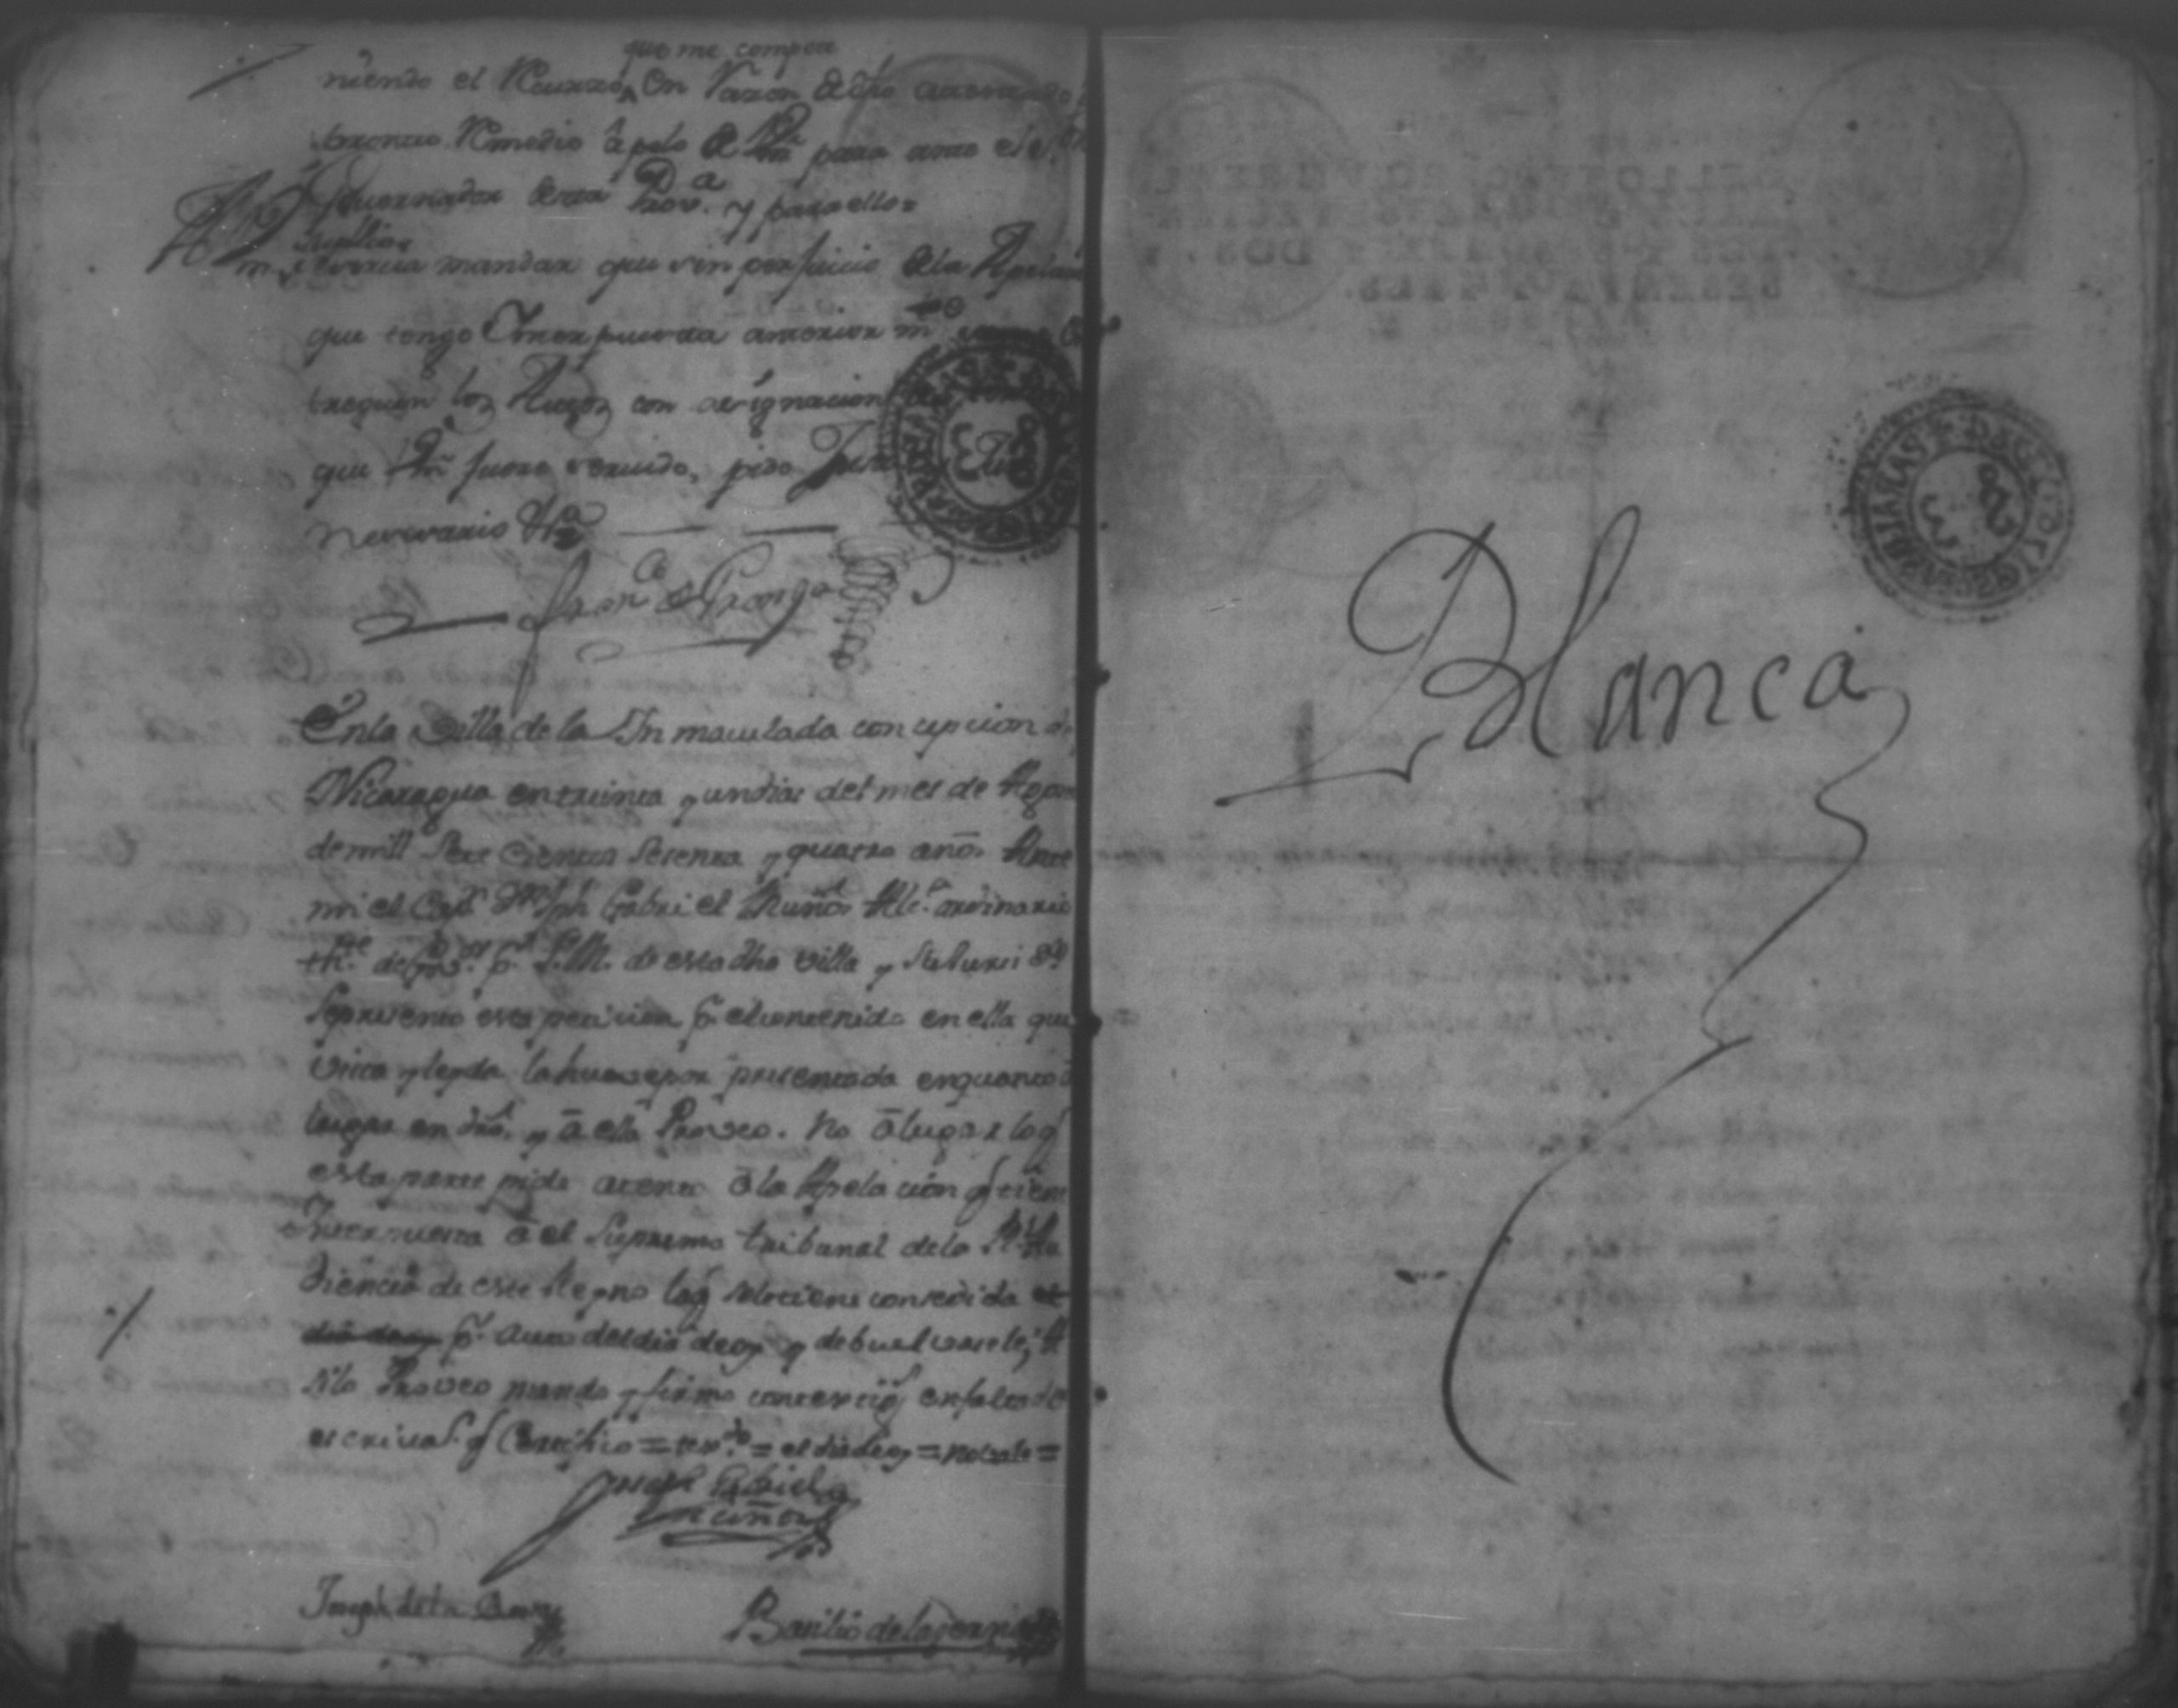 que me compete
niendo el Recurzo, en razon de dho
Remedio apelo de Vm para ante el
Governador desta Prov.a y para ello=
A Vm
suplico se sirva mandar que sin perjuicio de la Apelacion
que tengo Interpuesta anterior m.te
treguen los Autos con asignacion
que Vm fuere servido, pido Just
nesesario &a
Fran.co de Gronga
En la Villa de la Inmaculada concepcion de
Nicaragua en treinta y un dias del mes de Agosto
de mill Sete cientos setenta y quatro años Ante
mi el Cap.n Dn Jph Gabriel Muños Alc.e ordinario
th.e de Gov.or p.r S.M. de esta dha villa y su Jurisd.n
Se presento esta peticion p.r el contenido en ella que
vista y leyda la huve por presentada en quanto a
lugar en dro. y a ella Proveo. No a lugar lo q
esta parte pide atento a la Apelacion q tiene
Interpuesta a el Supremo tribunal de la R.l Au
diencia de este Reyno la q se le tiene consedida el
dia de oy p.r auto del dia de oy y debuelvasele, A
si lo Proveo mando y firmo con testigos en falta de
escrivas. q Certifico = tes.do = el dia de oy = no vale =
Joseph Gabriel
Muños
Joseph de la
Basilio de la
Blanca